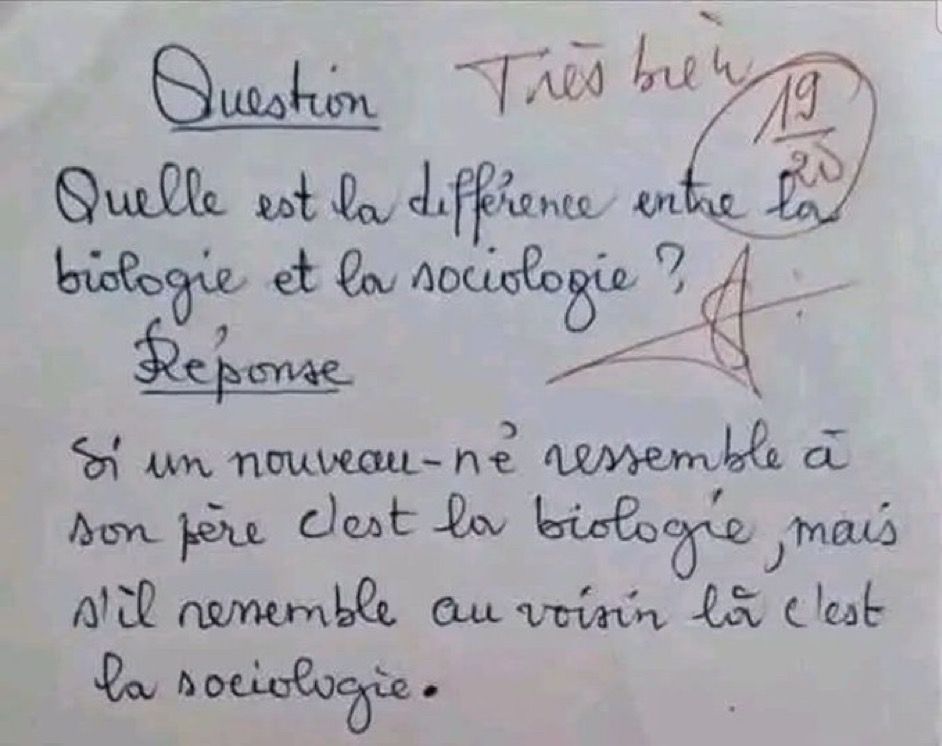 Question
Très bien
19/20
Quelle est la différence entre la
biologie et la sociologie ?
Réponse
Si un nouveau-né ressemble à
son père c'est la biologie, mais
s'il ressemble au voisin là c'est
la sociologie.